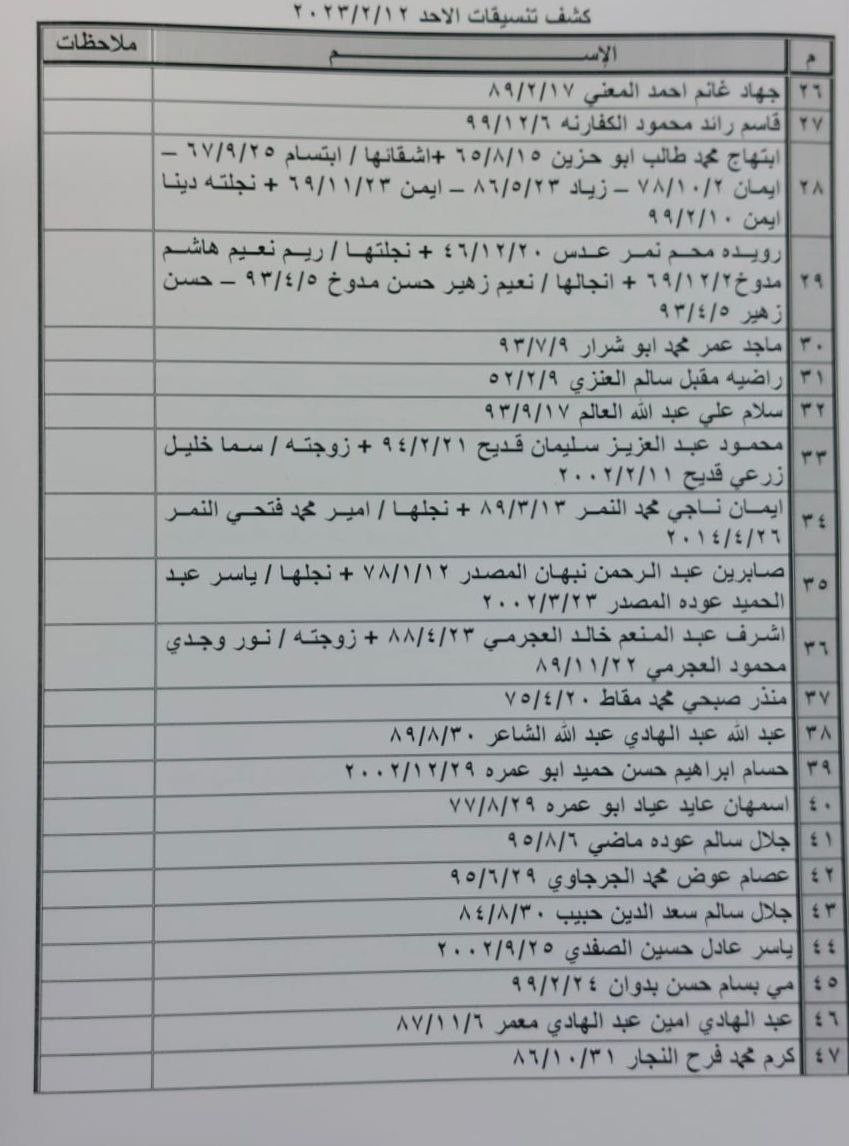 كشف تنسيقات الاحد ٢٠٢٣/٢/١٢
م الإســـــــم ملاحظات
٢٦ جهاد غانم احمد المعني ٨٩/٢/١٧
٢٧ قاسم رائد محمود الكفارنه ٩٩/١٢/٦
ابتهاج محمد طالب ابو حزين ٦٥/٨/١٥ +اشقائها / ابتسام ٦٧/٩/٢٥ –
٢٨ ايمان ٧٨/١٠/٢ – زياد ٨٦/٥/٢٣ – ايمن ٦٩/١١/٢٣ + نجلته دينا
ايمن ٩٩/٢/١٠
رويده محم نمر عدس ٤٦/١٢/٢٠ + نجلتها / ريم نعيم هاشم
٢٩ مدوخ ٦٩/١٢/٢ + انجالها / نعيم زهير حسن مدوخ ٩٣/٤/٥ – حسن
زهير ٩٣/٤/٥
٣٠ ماجد عمر محمد ابو شرار ٩٣/٧/٩
٣١ راضيه مقبل سالم العنزي ٥٢/٢/٩
٣٢ سلام علي عبد الله العالم ٩٣/٩/١٧
٣٣ محمود عبد العزيز سليمان قديح ٩٤/٢/٢١ + زوجته / سما خليل
زرعي قديح ٢٠٠٢/٢/١١
٣٤ ايمان ناجي محمد النمر ٨٩/٣/١٣ + نجلها / امير محمد فتحي النمر
٢٠١٤/٤/٢٦
٣٥ صابرين عبد الرحمن نبهان المصدر ٧٨/١/١٢ + نجلها / ياسر عبد
الحميد عوده المصدر ٢٠٠٢/٣/٢٣
٣٦ اشرف عبد المنعم خالد العجرمي ٨٨/٤/٢٣ + زوجته / نور وجدي
محمود العجرمي ٨٩/١١/٢٢
٣٧ منذر صبحي محمد مقاط ٧٥/٤/٢٠
٣٨ عبد الله عبد الهادي عبد الله الشاعر ٨٩/٨/٣٠
٣٩ حسام ابراهيم حسن حميد ابو عمره ٢٠٠٢/١٢/٢٩
٤٠ اسمهان عايد عياد ابو عمره ٧٧/٨/٢٩
٤١ جلال سالم عوده ماضي ٩٥/٨/٦
٤٢ عصام عوض محمد الجرجاوي ٩٥/٦/٢٩
٤٣ جلال سالم سعد الدين حبيب ٨٤/٨/٣٠
٤٤ ياسر عادل حسين الصفدي ٢٠٠٢/٩/٢٥
٤٥ مي بسام حسن بدوان ٩٩/٢/٢٤
٤٦ عبد الهادي امين عبد الهادي معمر ٨٧/١١/٦
٤٧ كرم محمد فرح النجار ٨٦/١٠/٣١